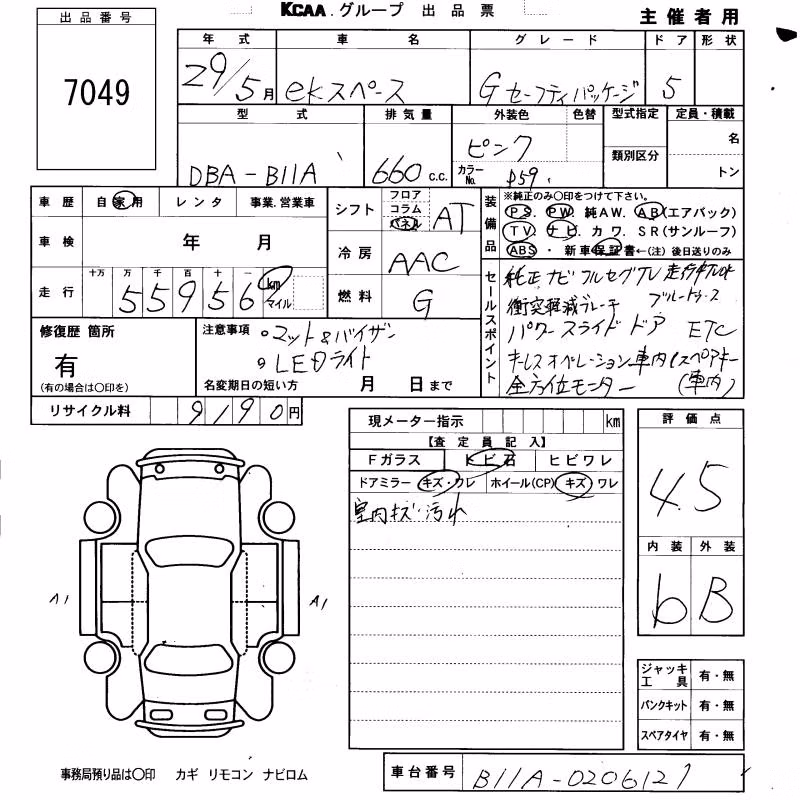 KCAA.グループ 出品票
主催者用
出品番号
7049
年式 車名 グレード ドア 形状
29/5月 ekスペース Gセーフティパッケージ 5
型式 排気量 外装色 色替 型式指定 定員・積載
DBA-B11A 660 c.c. ピンク 名
カラーNo. P59 類別区分 トン
車歴 自家用 レンタ 事業.営業車
車検 年 月
走行 十万 万 千 百 十 一
55956 km マイル
シフト フロア コラム パネル AT
冷房 AAC
燃料 G
装備品
※純正のみ〇印をつけて下さい。
PS. PW. 純AW. AB(エアバック)
TV. ナビ. カワ. SR(サンルーフ)
ABS ・ 新車保証書←(注) 後日送りのみ
セールスポイント
純正ナビ フルセグTV 走行中TVOK
衝突軽減ブレーキ ブルートゥース
パワースライドドア ETC
キーレスオペレーション車内(スペアキー
全方位モニター (車内)
修復歴 箇所
有
(有の場合は〇印を)
注意事項
。マット&バイザー
。LEDライト
名変期日の短い方 月 日まで
リサイクル料 9190円
現メーター指示 km
【査定員記入】
Fガラス トビ石 ヒビワレ
ドアミラー キズ・ワレ ホイール(CP) キズ ワレ
室内キズ・汚れ
評価点
4.5
内装 外装
b B
A1
A1
ジャッキ工具 有・無
パンクキット 有・無
スペアタイヤ 有・無
事務局預り品は〇印 カギ リモコン ナビロム
車台番号 B11A-0206127